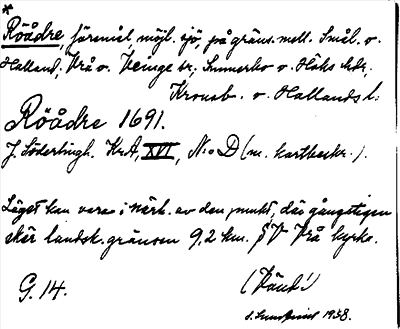 *
Röådre, föremål, möjl. sjö, på gräns. mell. Smål. o.
Halland. Vrå o. Veinge sr, Sunnerbo o. Höks hdr,
Kronob. o. Hallands l:
Röådre 1691.
J. Söderlingh. KrA, XVI, N:o D (m. kartbeskr.).
Läget kan vara i närh. av den punkt, där gångstigen
skär landsk.gränsen 9,2 km. SV Vrå kyrka.
G. 14.
(Vänd!)
1938.